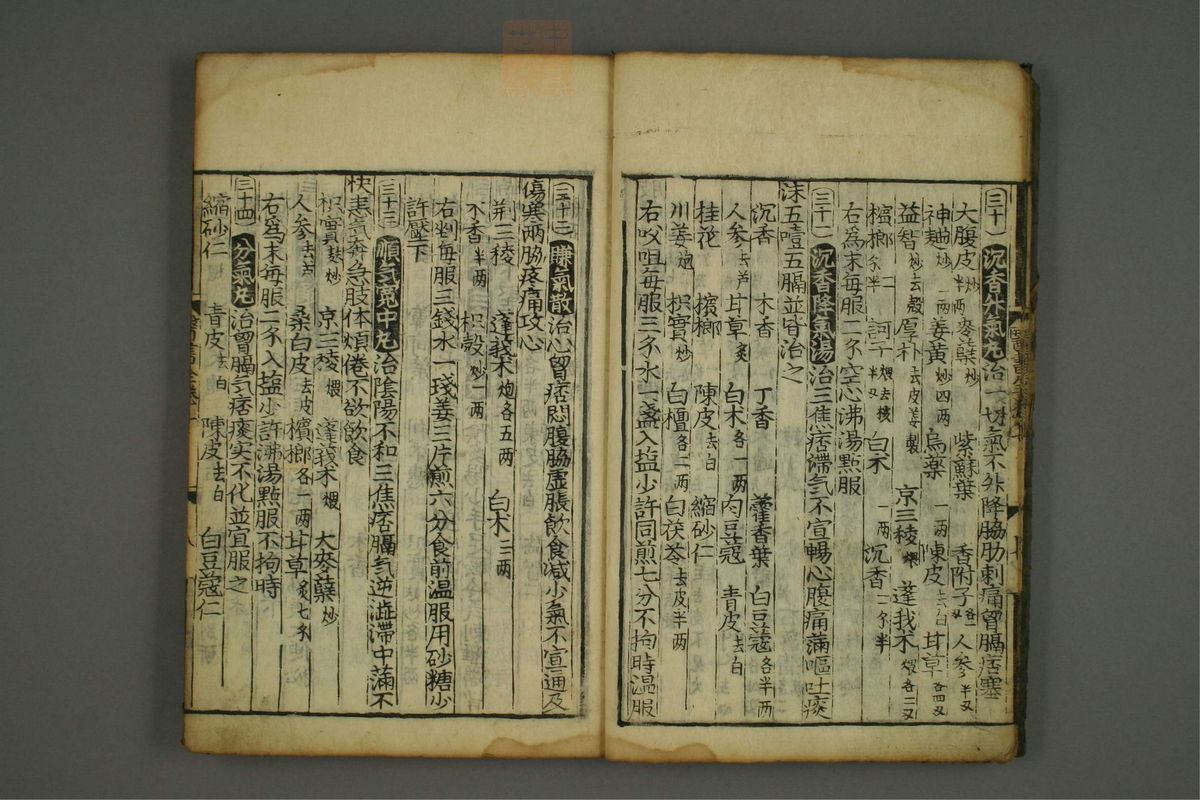 三十一 沉香升氣丸 治一切氣不升降脇肋刺痛胷膈痞塞
大腹皮炒半两 麥蘖炒 紫蘇葉 香附子各二又 人參半又
神麯炒一两 姜黄炒四两 烏藥一两 陳皮去白 甘草各四又
益智炒去殼 厚朴去皮姜製 京三稜煨 蓬我术煨各二又
檳榔二个半 訶子煨去核 白术一两 沉香二个半
右為末每服二个空心沸湯點服
三十二 沉香降氣湯 治三焦痞滯气不宣暢心腹痛滿嘔吐痰
沫五噎五膈並皆治之
沉香 木香 丁香 藿香葉 白豆蔻各半两
人參去芦 甘草炙 白术各一两 肉豆蔻 青皮去白
桂花 檳榔 陳皮去白 縮砂仁
川姜炮 枳實炒 白檀各二两 白茯苓去皮半两
右㕮咀每服三个水一盞入塩少許同煎七分不拘時温服
三十三 賺氣散 治心胷痞悶腹脇虛脹飲食减少氣不宣通及
傷寒两脇疼痛攻心
荆三稜 蓬莪术炮各五两 白术三两
木香半两 枳殼炒一两
右剉每服三錢水一琖姜三片煎六分食前温服用砂糖少
許壓下
三十三 順气寬中丸 治陰陽不和三焦痞膈气逆澁滯中滿不
快恚气奔急肢体煩倦不欲飲食
枳實麸炒 京三稜煨 蓬莪术煨 大麥蘖炒
人參去芦 桑白皮去皮 檳榔各一两 甘草炙七个
右為末每服二个入塩少許沸湯點服不拘時
三十四 分氣丸 治胷膈气痞痰实不化並宜服之
縮砂仁 青皮去白 陳皮去白 白豆蔻仁